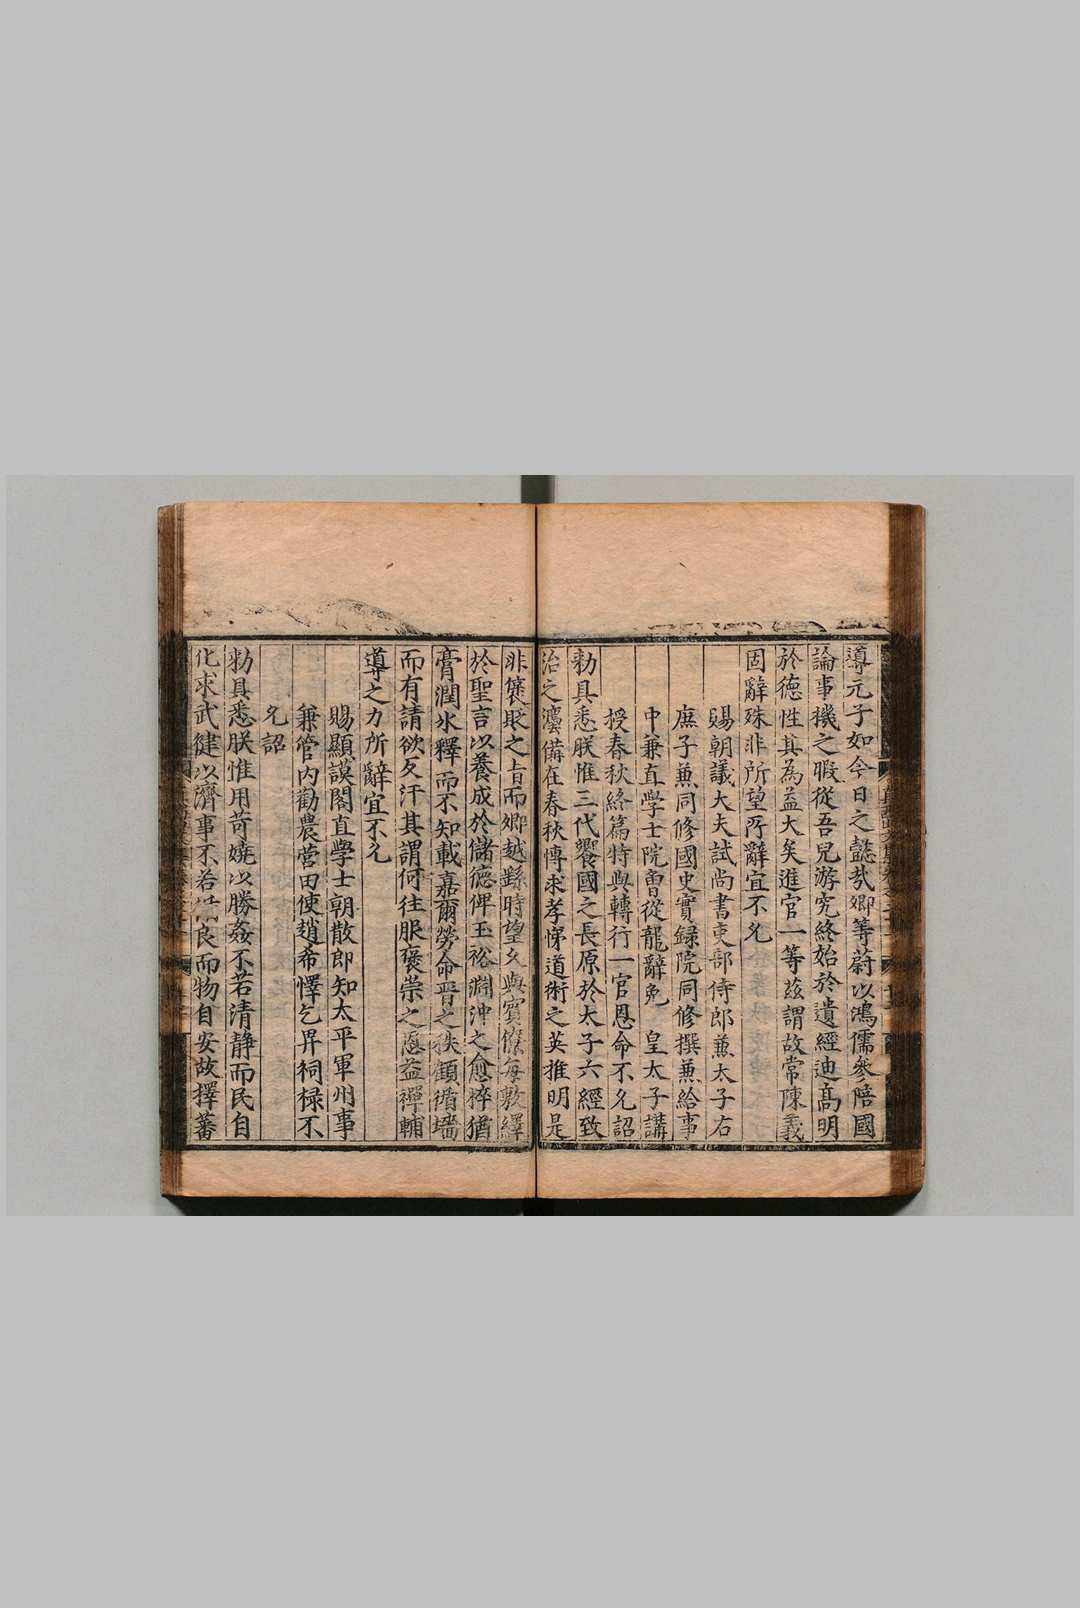 導元子如今日之懿哉卿等蔚以鴻儒參陪國
論事機之暇從吾兒游究終始於遺經迪髙明
於徳性其為益大矣進官一等兹謂故常陳義
固辭殊非所望所辭宜不允
賜朝議大夫試尚書吏部侍郎兼太子右
庶子兼同修國史實録院同修撰兼給事
中兼直學士院曾從龍辭免 皇太子講
授春秋終篇特與轉行一官恩命不允詔
勑具悉朕惟三代饗國之長原於太子六經致
治之 備在春秋慱求孝悌道術之英推明是
非襃貶之旨而卿越繇時望久與賓僚每敷繹
於聖言以養成於儲徳俾玉裕淵沖之愈粹猶
膏潤氷釋而不知載嘉爾勞命晋之秩顧循墻
而有請欲反汗其謂何往服褒崇之 益禆輔
導之力所辭宜不允
賜顯謨閣直學士朝散郎知太平軍州事
兼管内勸農營田使趙希懌乞畀祠禄不
允詔
勑具悉朕惟用苛嬈以勝姦不若清静而民自
化求武健以濟事不若 良而物自安故擇蕃